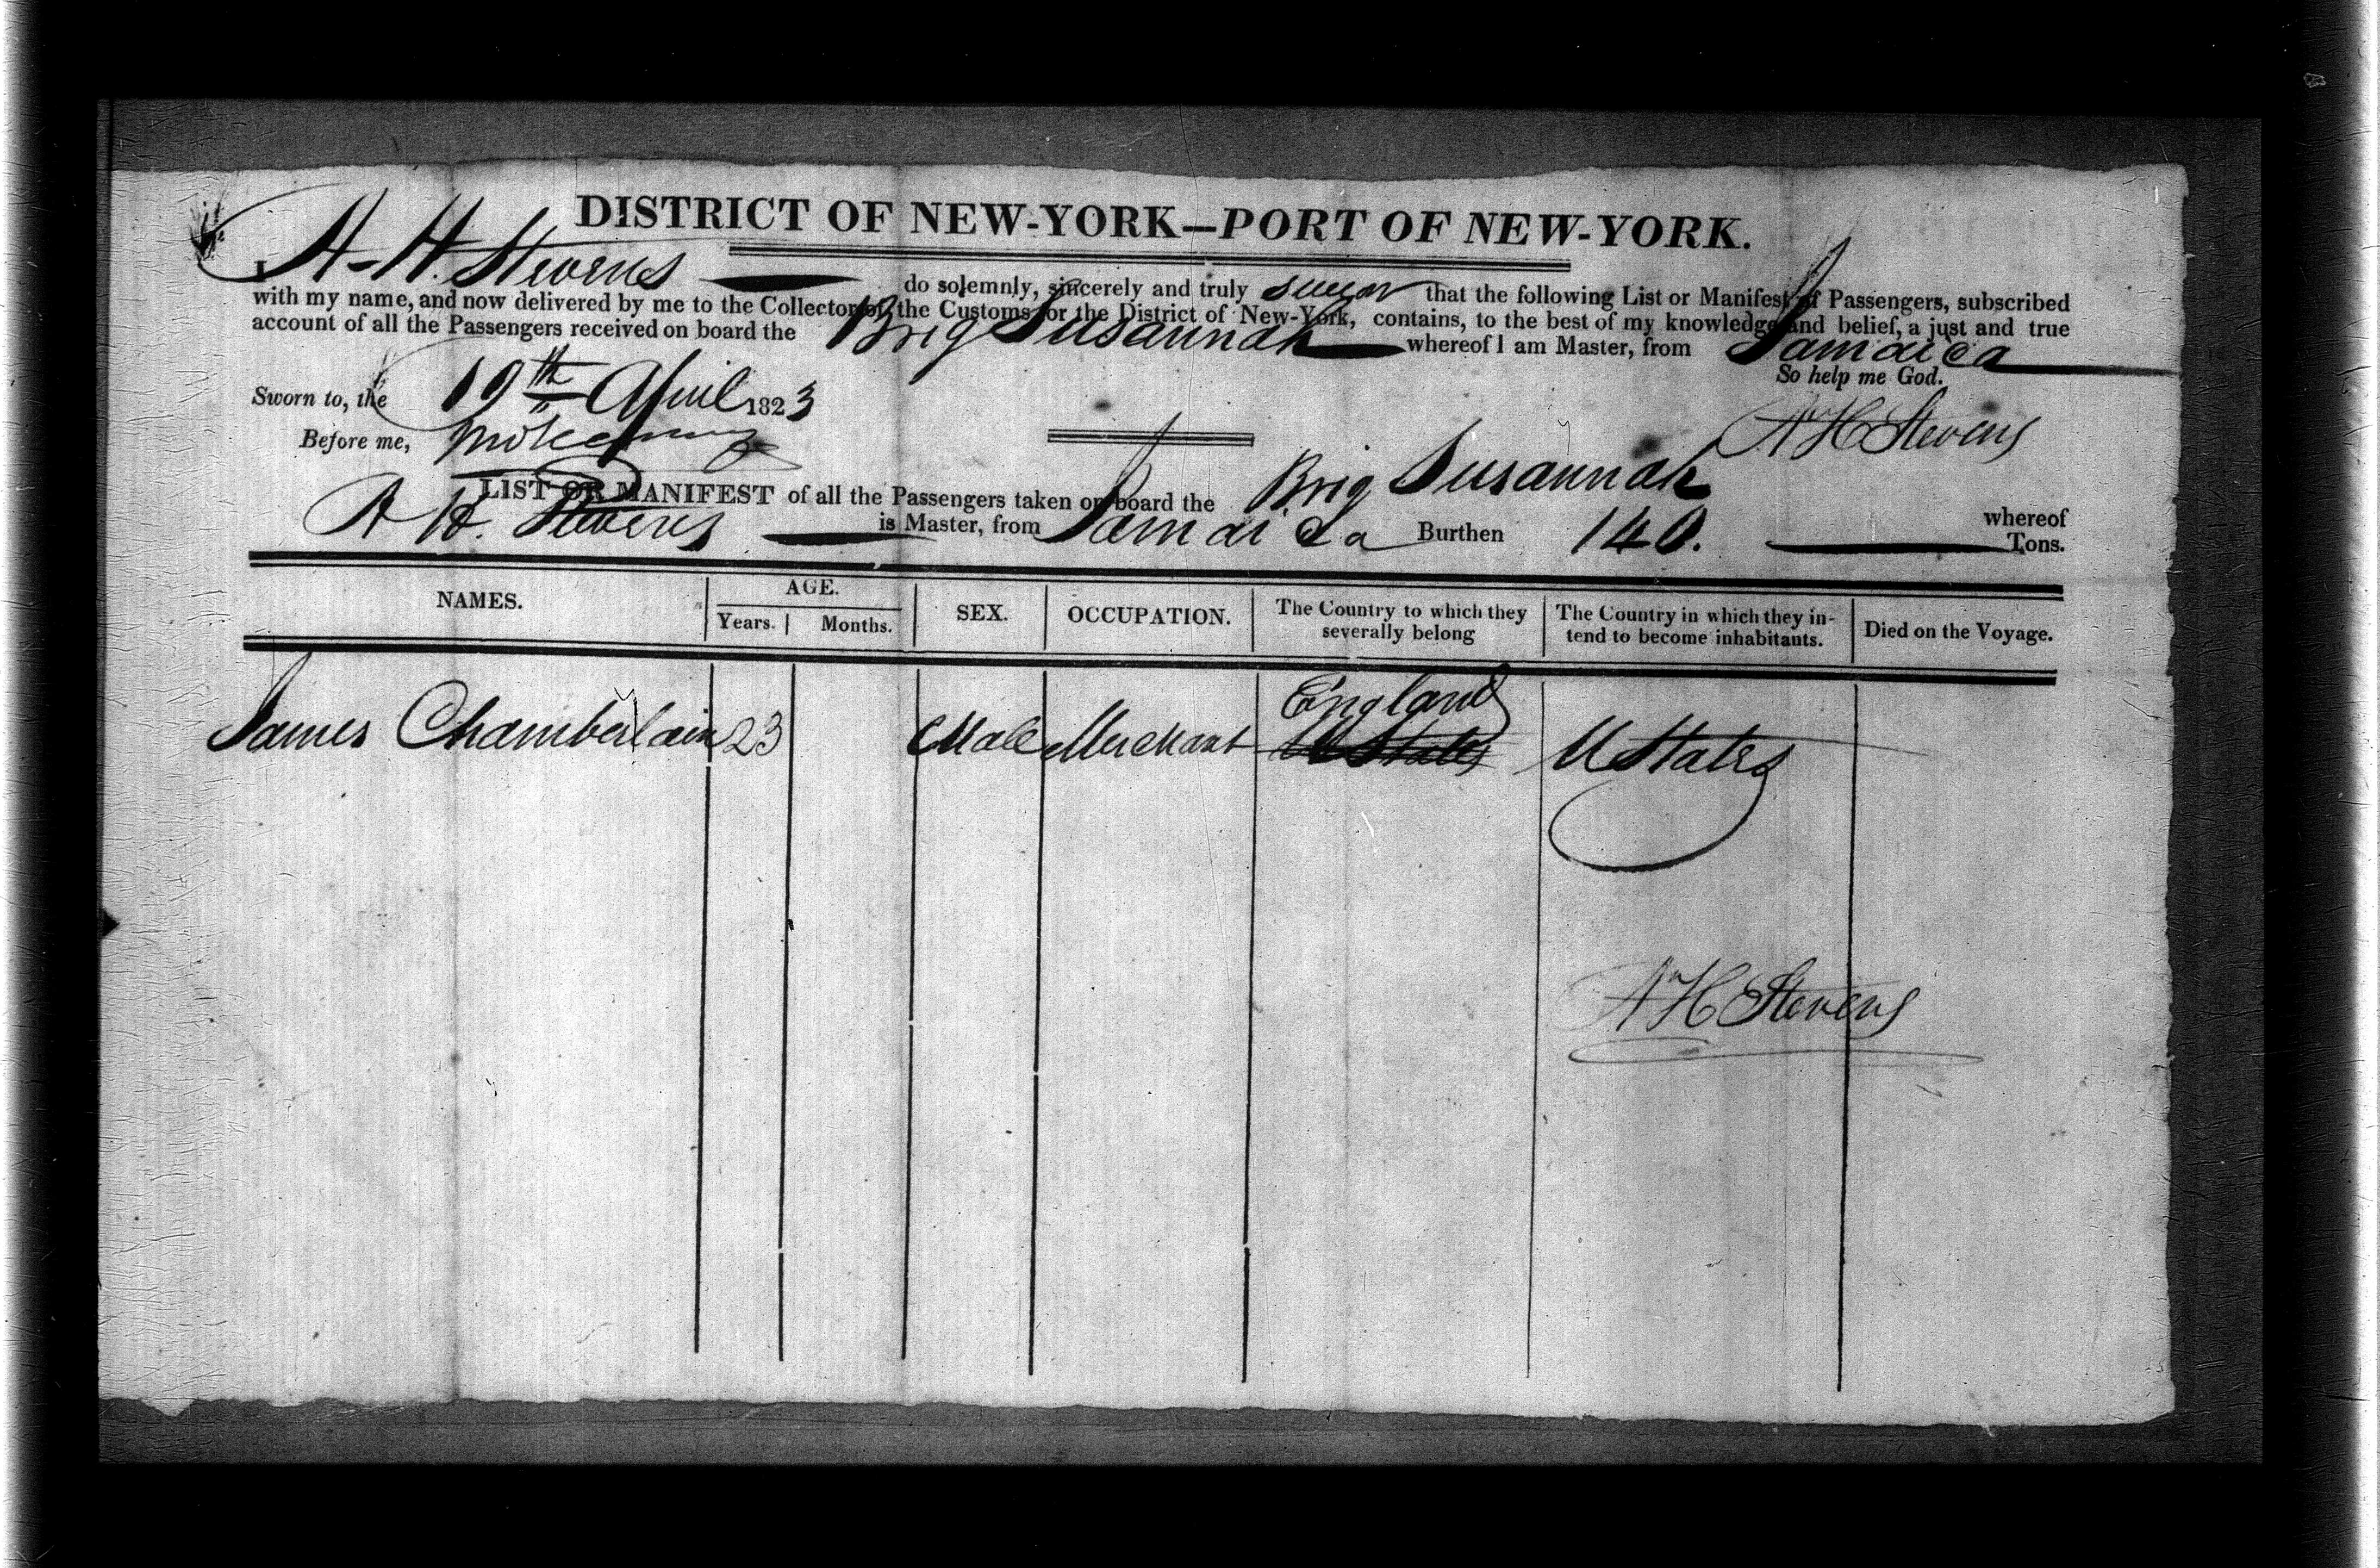 DISTRICT OF NEW-YORK—PORT OF NEW-YORK.
I A-H. Stevens do solemnly, sincerely and truly swear that the following List or Manifest of Passengers, subscribed
with my name, and now delivered by me to the Collector of the Customs for the District of New-York, contains, to the best of my knowledge and belief, a just and true
account of all the Passengers received on board the Brig Susannah whereof I am Master, from Jamaica
So help me God.
Sworn to, the 19th April 1823
Before me,
A H Stevens
LIST OR MANIFEST of all the Passengers taken on board the Brig Susannah whereof
A H. Stevens is Master, from Jamaica Burthen 140. Tons.
NAMES. AGE. SEX. OCCUPATION. The Country to which they severally belong The Country in which they intend to become inhabitants. Died on the Voyage.
Years. Months.
England
James Chamberlain 23 Male Merchant U States U States
A H Stevens